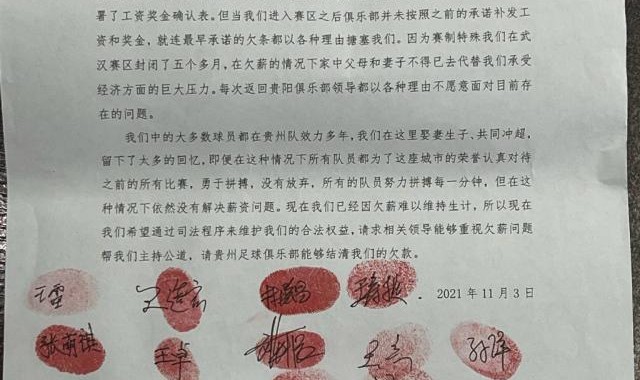 署了工资奖金确认表。但当我们进入赛区之后俱乐部并未按照之前的承诺补发工
资和奖金，就连最早承诺的欠条都以各种理由搪塞我们。因为赛制特殊我们在武
汉赛区封闭了五个多月，在欠薪的情况下家中父母和妻子不得已去代替我们承受
经济方面的巨大压力。每次返回贵阳俱乐部领导都以各种理由不愿意面对目前存
在的问题。
我们中的大多数球员都在贵州队效力多年，我们在这里娶妻生子、共同冲超，
留下了太多的回忆，即便在这种情况下所有队员都为了这座城市的荣誉认真对待
之前的所有比赛，勇于拼搏，没有放弃，所有的队员努力拼搏每一分钟，但在这
种情况下依然没有解决薪资问题。现在我们已经因欠薪难以维持生计，所以现在
我们希望通过司法程序来维护我们的合法权益，请求相关领导能够重视欠薪问题
帮我们主持公道，请贵州足球俱乐部能够结清我们的欠款。
2021 年 11 月 3 日
王卓